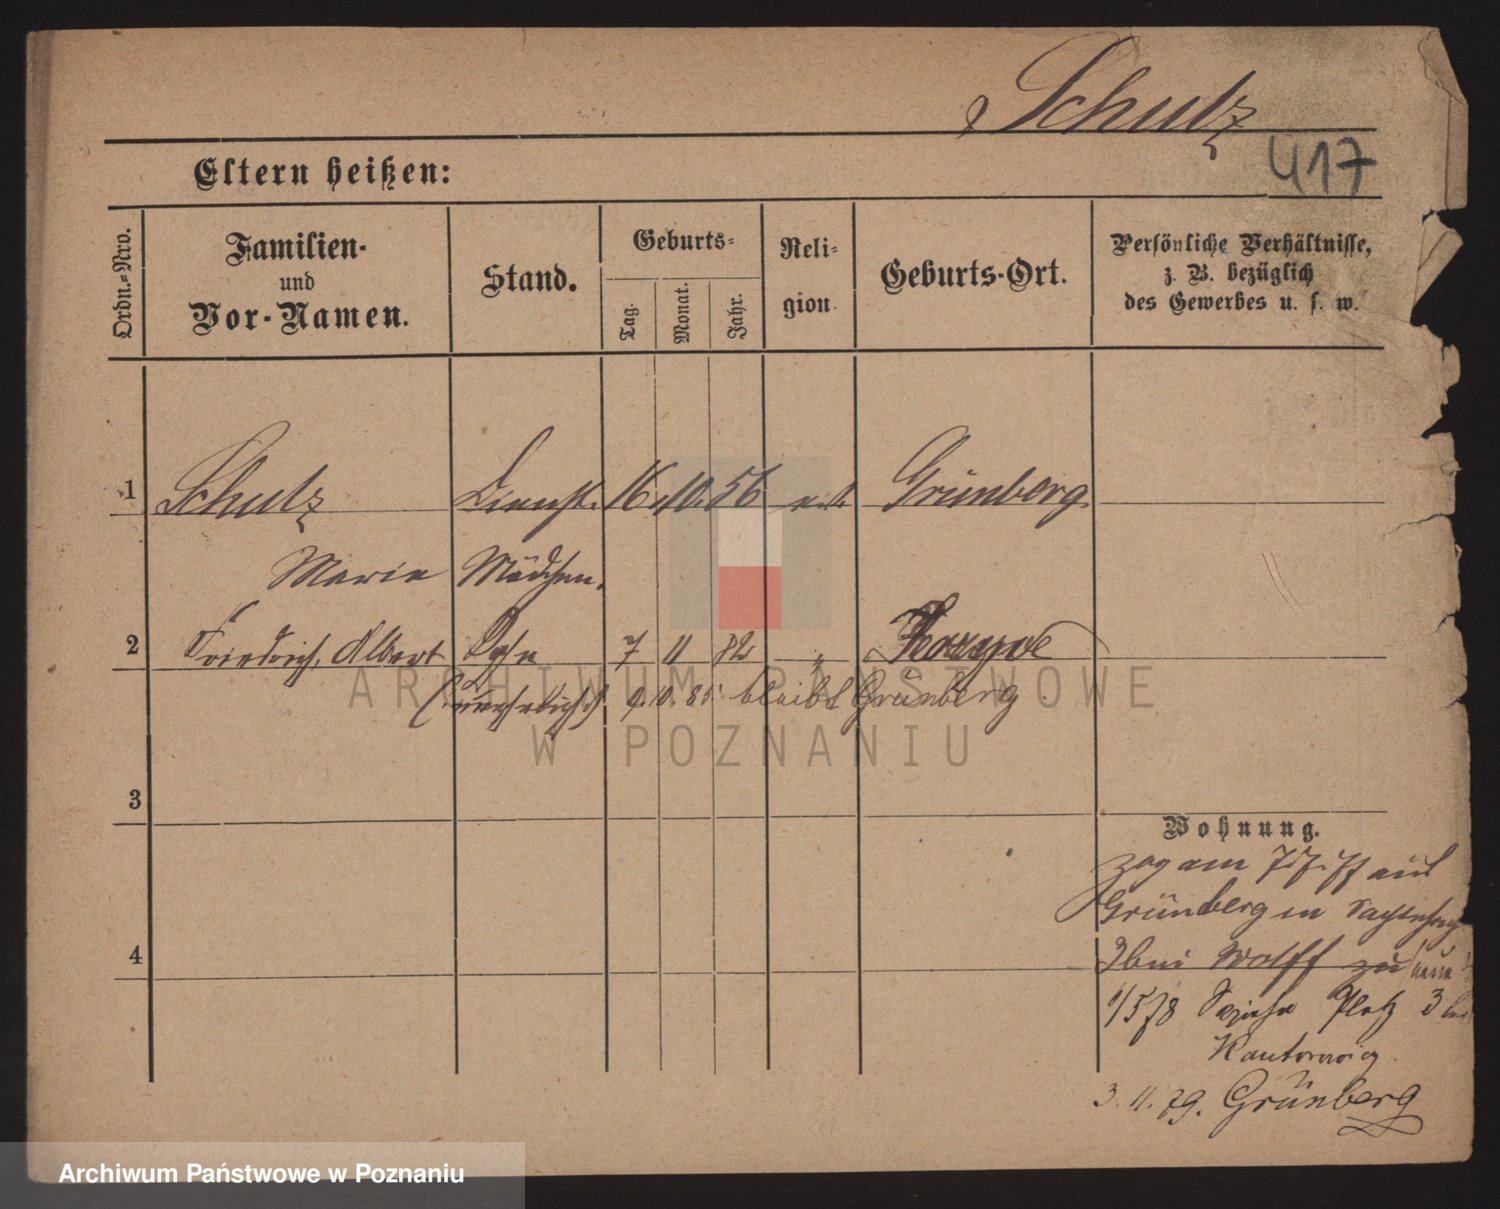 Schulz
417
Eltern heißen:
Ordn.-Nro.
Familien-
und
Vor-Namen.
Stand.
Geburts-
Tag.
Monat.
Jahr.
Reli-
gion.
Geburts-Ort.
Persönliche Verhältnisse,
z. B. bezüglich
des Gewerbes u. s. w.
1 Schulz Dienst- 16. 10. 56 Grünberg
Maria Mädchen.
2 Friedrich, Albert Sohn 7 11 82 "
(unehelich) 9. 10. 85 bleibt Grünberg.
ARCHIWUM PAŃSTWOWE
W POZNANIU
3
Wohnung.
zog am aus
Grünberg in
3 bei Wolff zu
4
1/5 78 Platz 3 bei
Kantorowicz.
3. 11. 79. Grünberg
Archiwum Państwowe w Poznaniu